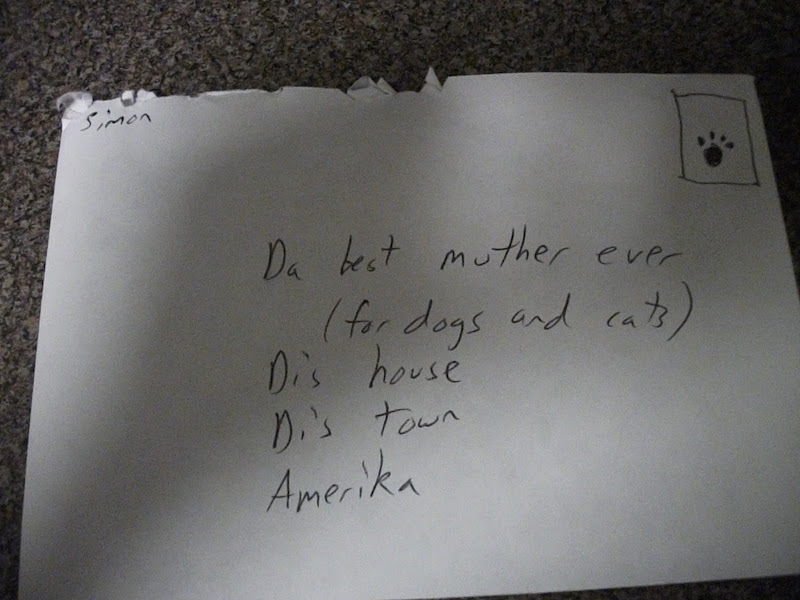 Simon
Da best muther ever
(for dogs and cats)
Dis house
Dis town
Amerika